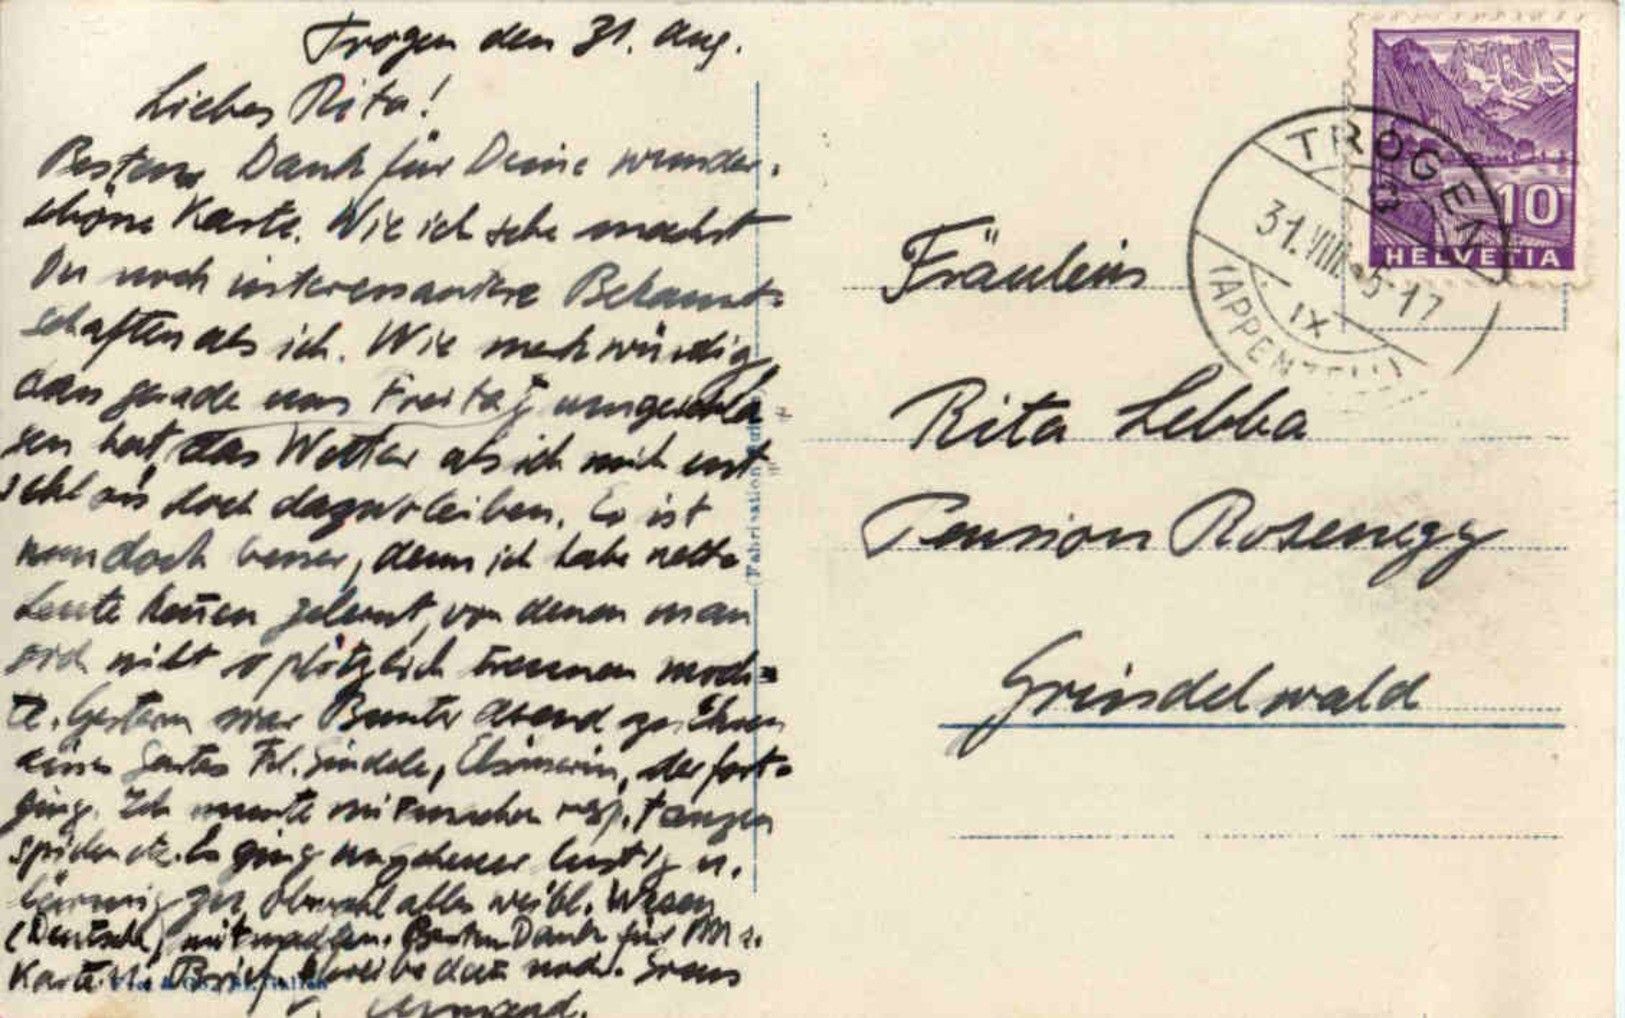 Trogen den 31. Aug.
Liebes Rita!
Besten Dank für Deine wunder-
schöne Karte. Wie ich sehe machst
Du noch interessantere Bekannt-
schaften als ich. Wie merkwürdig
dass gerade uns Freitag umgeschla
gen hat das Wetter als ich mich ent
schloss doch dazubleiben. Es ist
nun doch besser, denn ich habe nette
Leute kennen gelernt, von denen man
sich nicht so plötzlich trennen moch=
te. Gestern war Bunter Abend zu Ehren
eines Gastes Frl. Gindele, der fort-
ging. Ich musste mitmachen resp. tanzen
spielen etc. Es ging ungeheuer lustig u.
lärmig zu, obwohl alles weibl. Wesen
(Deutsche) mitmachten. Besten Dank für
Karte u. Brief, schreibe dann noch. Gruss
Armand.
Fräulein
Rita Lebba
Pension Rosenegg
Grindelwald
HELVETIA
10
TROGEN
31.VIII. 35-17
IX
(APPENZELL)